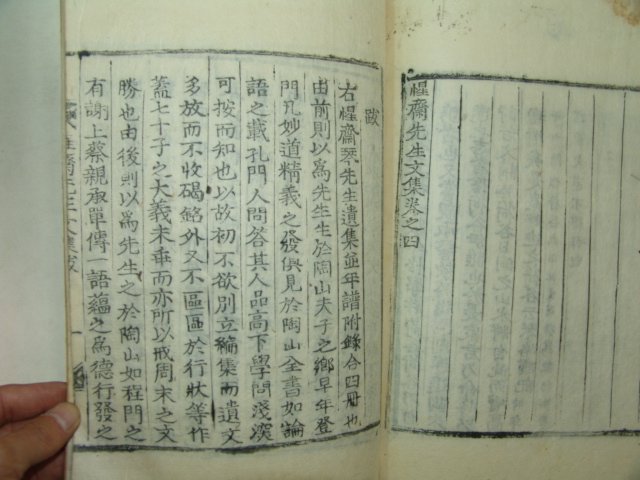 惺齋先生文集卷之四
跋
右惺齋琴先生遺集並年譜附錄合四冊也
由前則以爲先生生於陶山夫子之鄕早年登
門凡妙道精義之發俱見於陶山全書如論
語之載孔門人問答其人品高下學問淺深
可按而知也以故初不欲別立編集而遺文
多放而不收碣銘外又不區區於行狀等作
蓋七十子之大義未乖而亦所以戒周末之文
勝也由後則以爲先生之於陶山如程門之
有謝上蔡親承單傳一語蘊之爲德行發之
惺齋先生文集跋
一